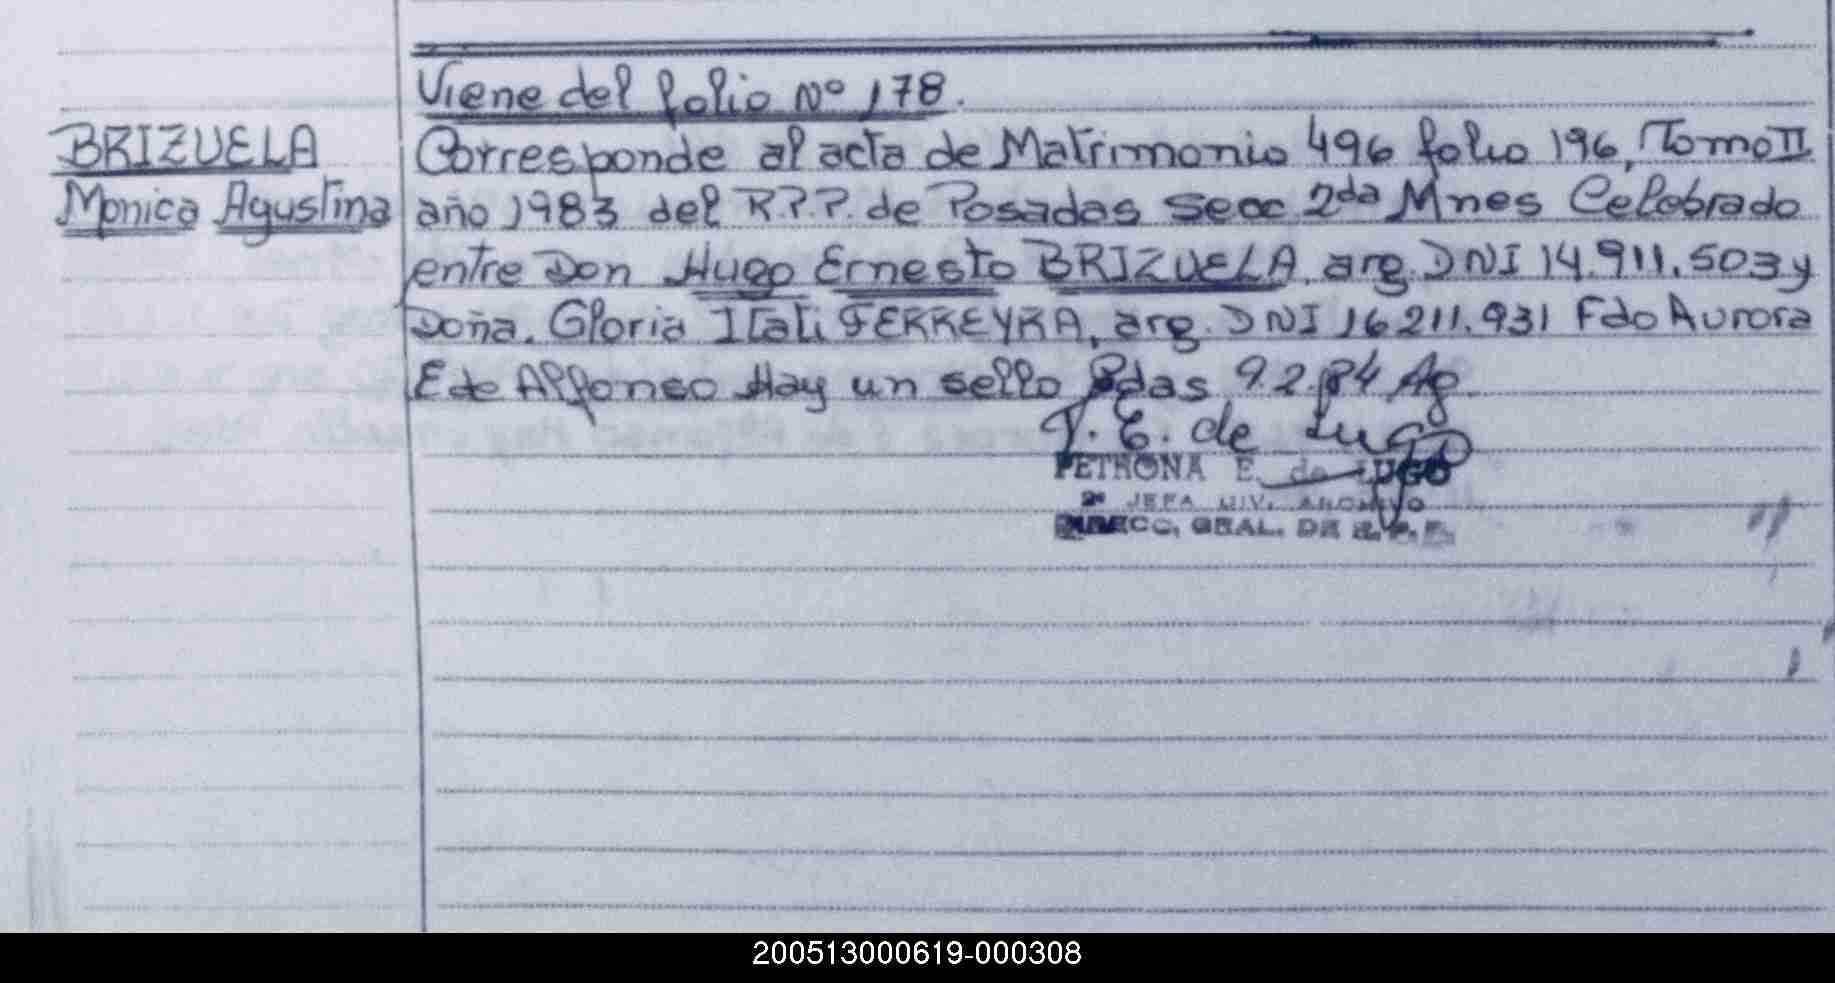 Viene del folio Nº 178.
BRIZUELA
Monica Agustina
Corresponde al acta de Matrimonio 496 folio 196, Tomo II
año 1983 del R.P.P. de Posadas Secc 2da Mnes Celebrado
entre Don Hugo Ernesto BRIZUELA, arg. DNI 14.911.503 y
Doña. Gloria Itati FERREYRA, arg. DNI 16211.931 Fdo Aurora
E de Alfonso Hay un sello Pdas 9.2.84 Ag
P. E. de Lugo
PETRONA E. de LUGO
2º JEFA DIV. ARCHIVO
DIRECC. GRAL. DE R.P.P.
200513000619-000308